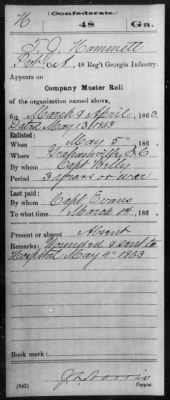 H
(Confederate.)
48
Ga.
T. J. Hammett
Pvt, Co. A, 48 Reg't Georgia Infantry.
Appears on
Company Muster Roll
of the organization named above,
for March & April, 1863.
Dated May 13 1863
Enlisted:
When May 5, 186
Where Grahamville, S.C.
By whom Capt Hollis
Period 3 years or war
Last paid:
By whom Capt Evans
To what time March 1st, 186
Present or absent Absent
Remarks: Wounded & sent to
Hospital May 4th 1863
Book mark:
(642)
Copyist.